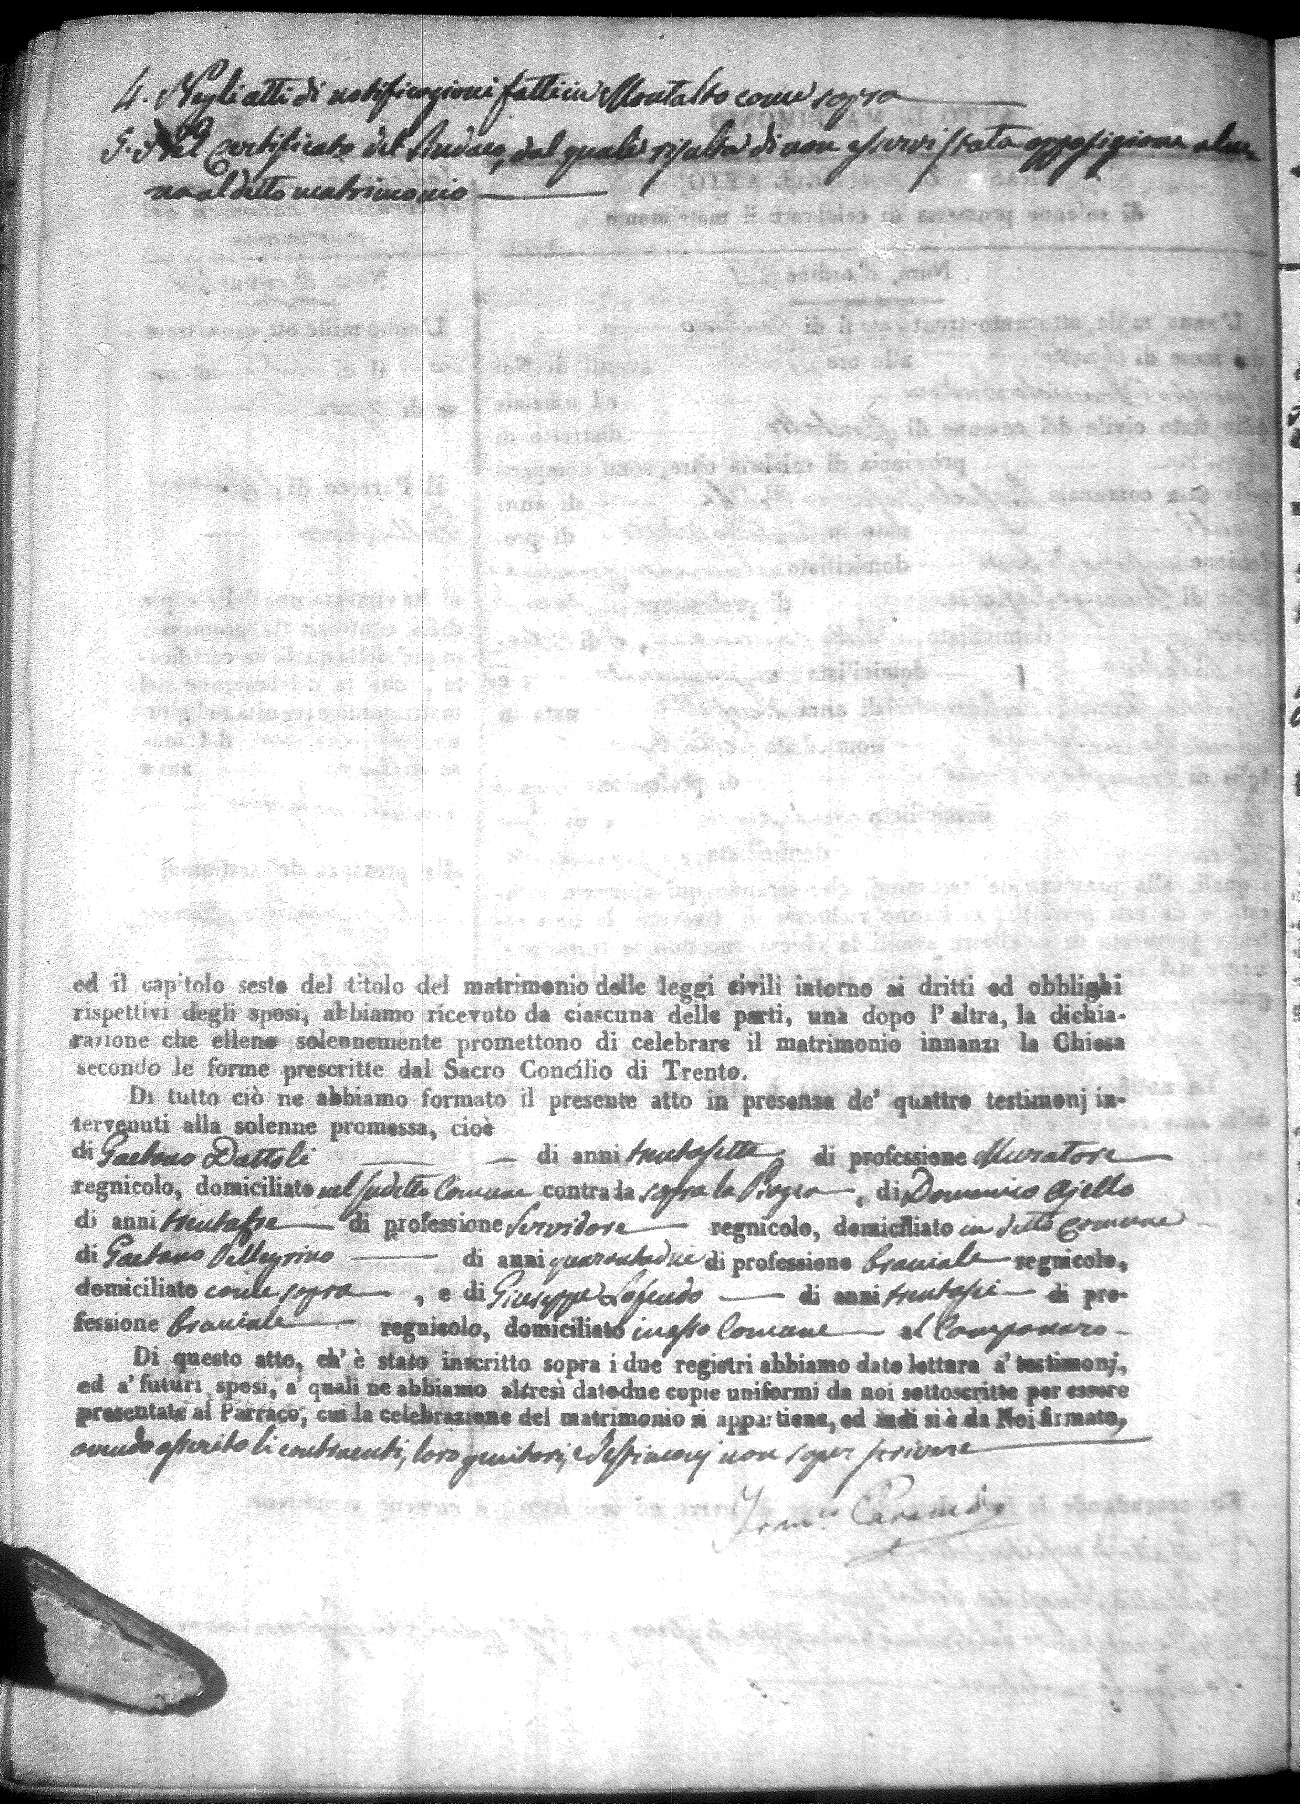 4. Negli atti di notificazioni fatti in Montalto come sopra
5. Nel Certificato del Sindaco, dal quale risulta di non esservi stata opposizione alcu
na al detto matrimonio
ed il capitolo sesto del titolo del matrimonio delle leggi civili intorno ai dritti ed obblighi
rispettivi degli sposi, abbiamo ricevuto da ciascuna delle parti, una dopo l' altra, la dichia-
razione che elleno solennemente promettono di celebrare il matrimonio innanzi la Chiesa
secondo le forme prescritte dal Sacro Concilio di Trento.
Di tutto ciò ne abbiamo formato il presente atto in presenza de' quattro testimonj in-
tervenuti alla solenne promessa, cioè
di Gaetano Dattoli di anni trentasette di professione Muratore
regnicolo, domiciliato nel sudetto Comune contrada sopra la , di Domenico Ajello
di anni trentatre di professione Servidore regnicolo, domiciliato in detto comune
di Gaetano Pellegrino di anni quarantadue di professione Bracciale regnicolo,
domiciliato come sopra , e di Giuseppe di anni trentasei di pro-
fessione Bracciale regnicolo, domiciliato in esso Comune al
Di questo atto, ch' è stato inscritto sopra i due registri abbiamo dato lettura a' testimonj,
ed a' futuri sposi, a' quali ne abbiamo altresì dato due copie uniformi da noi sottoscritte per essere
presentate al Parraco, cui la celebrazione del matrimonio si appartiene, ed indi si è da Noi firmato,
avendo asserito li contraenti, loro genitori, e Testimonj non saper scrivere